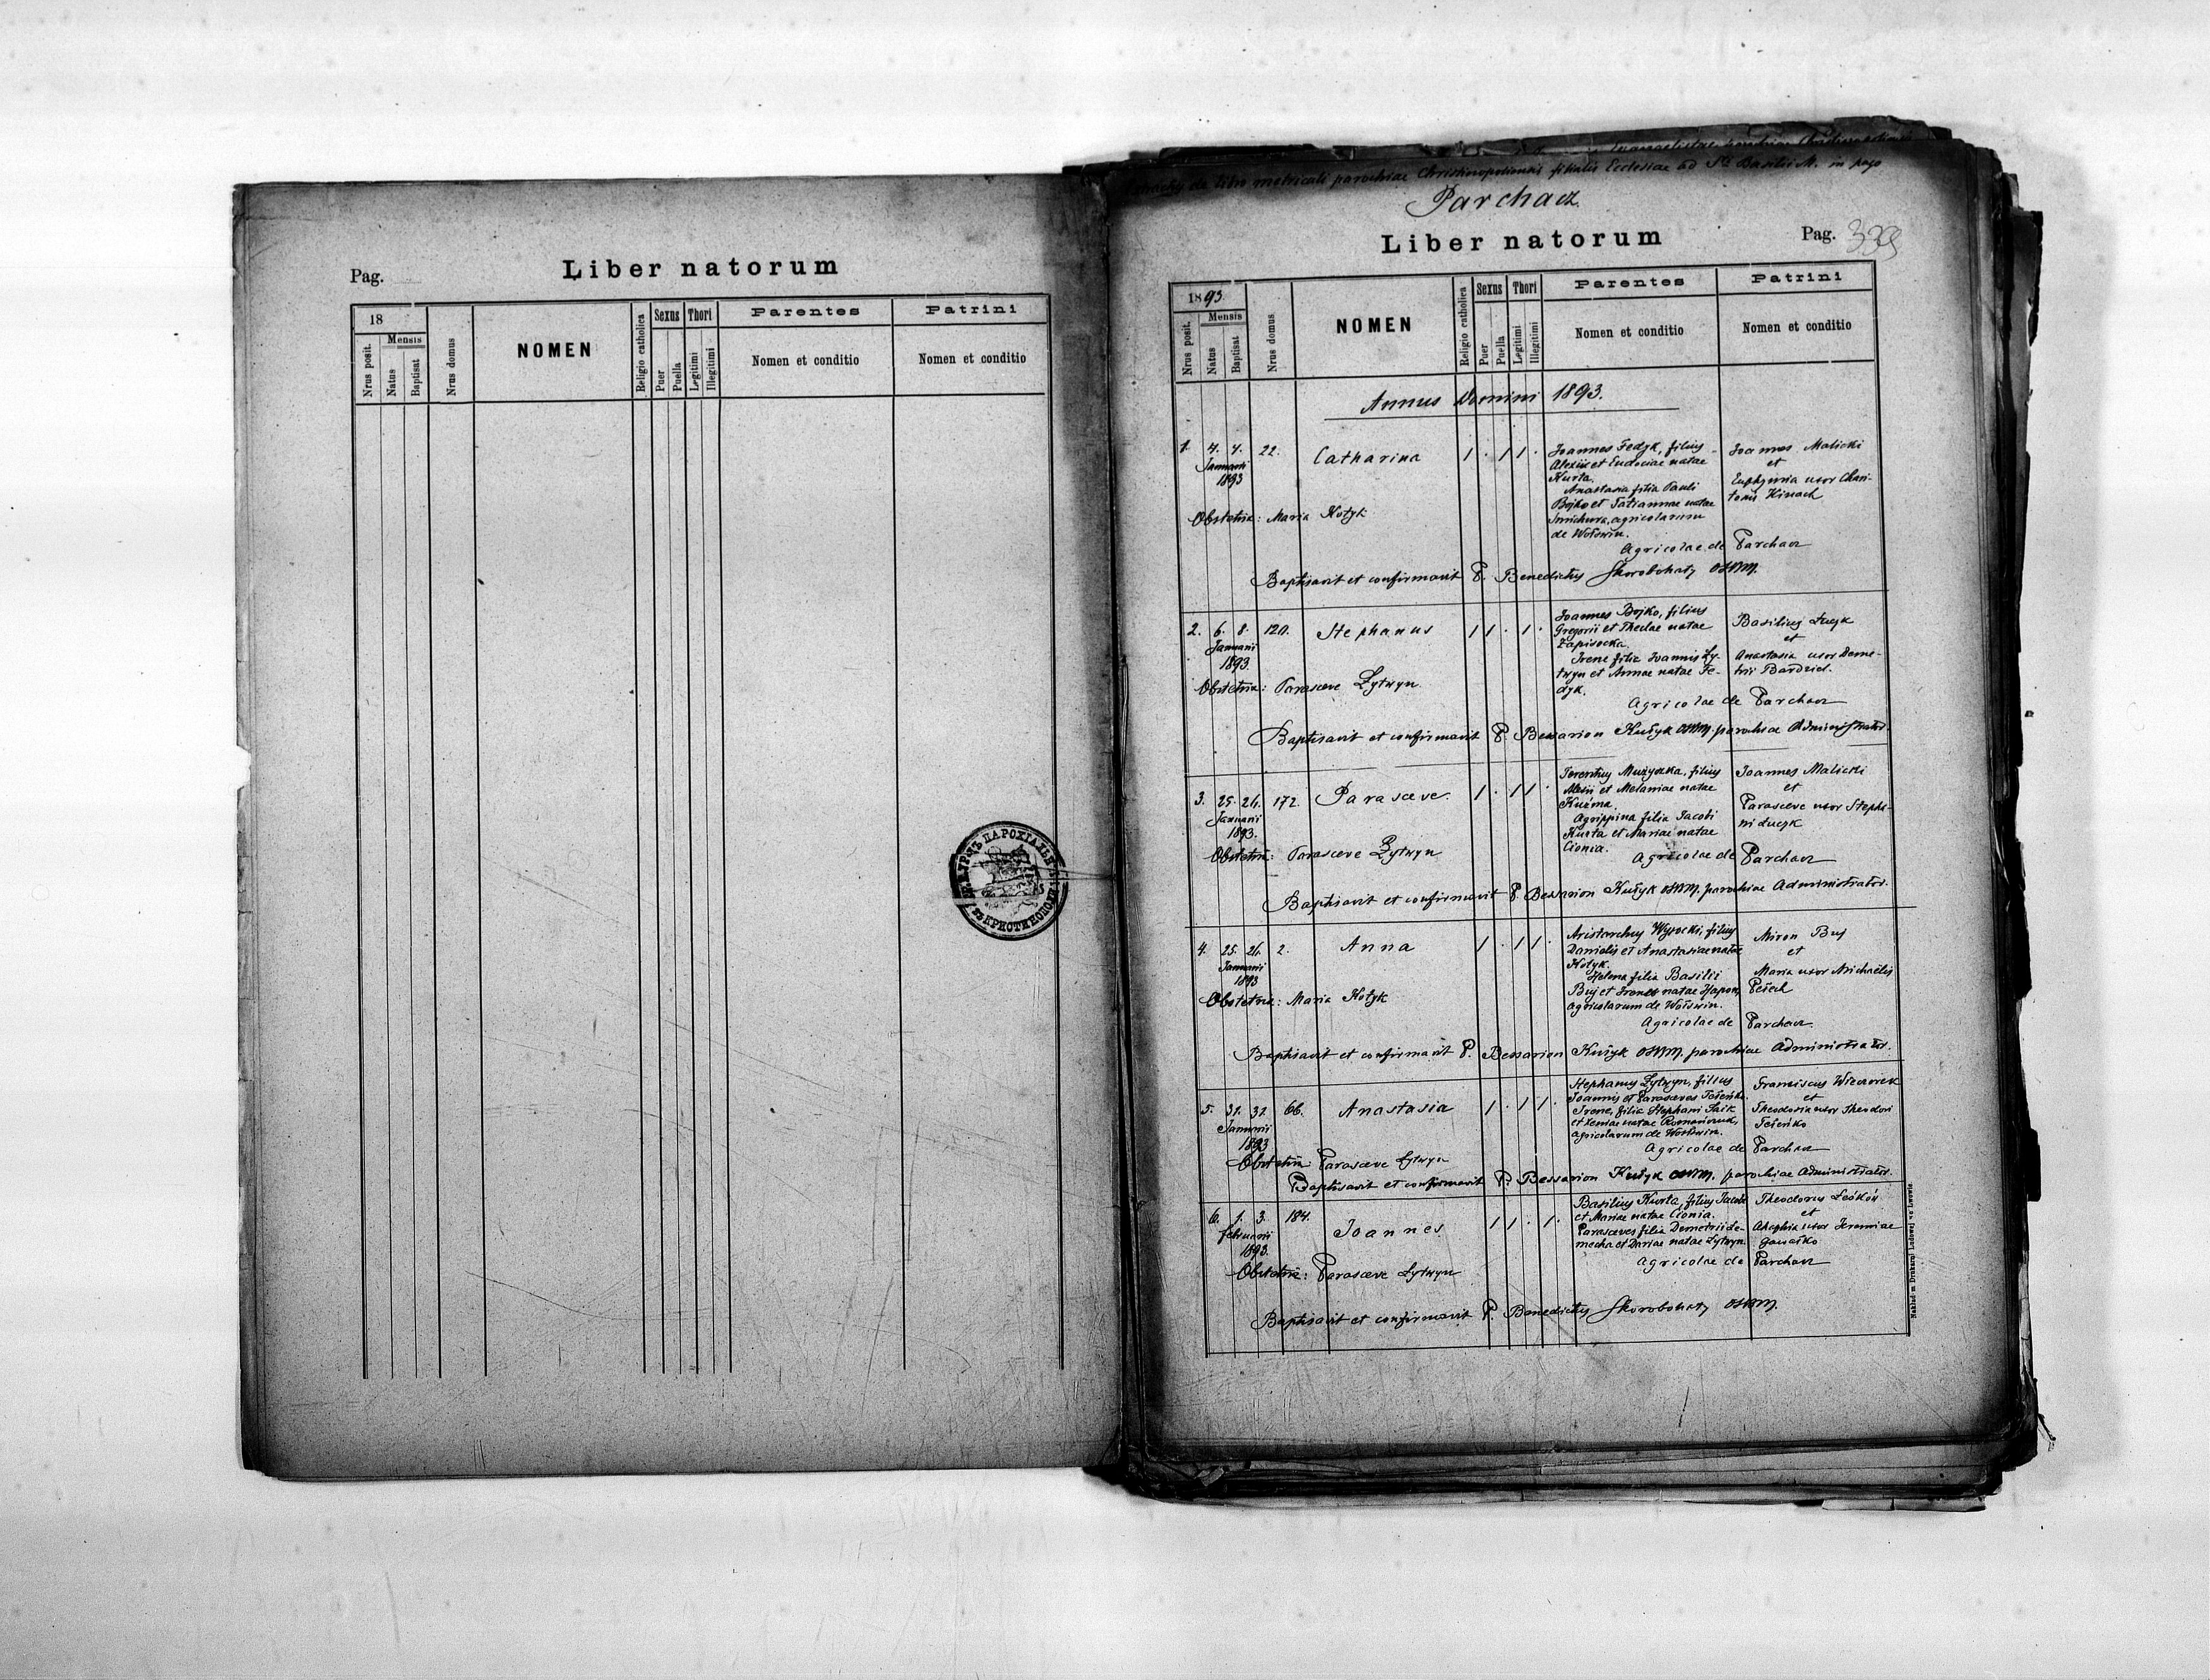 Pag.
Liber natorum
18
Mensis
Nrus posit.
Natus
Baptisat
Nrus domus
NOMEN
Religio catholica
Sexus
Puer
Puella
Thori
Legitimi
Illegitimi
Parentes
Nomen et conditio
Patrini
Nomen et conditio
de libro metricali parochiae Christinopoliensis filialis Ecclesiae ad St. Basilii M. in pago
Parchacz
Liber natorum
Pag. 339
1893
Mensis
Nrus posit.
Natus
Baptisat
Nrus domus
NOMEN
Religio catholica
Sexus
Puer
Puella
Thori
Legitimi
Illegitimi
Parentes
Nomen et conditio
Patrini
Nomen et conditio
Annus Domini 1893.
1. 4. 4. 22. Catharina 1 . 1 1 .
Januarii
1893
Joannes Fedyk, filius
Alexii et Eudociae natae
Kurta.
Anastasia filia Pauli
Bojko et Tatiannae natae
agricolarum
de Wołswin.
Joannes Malicki
et
Euphymia uxor Chari-
tonis Kinach
Obstetrix: Maria Kotyk
Agricolae de Parchacz
Baptisavit et confirmavit P. Benedictus Skorobohaty OSBM.
2. 6. 8. 120. Stephanus 1 1 . 1 .
Januarii
1893.
Joannes Bojko, filius
Gregorii et Theclae natae
Zapisocka.
Irene filia Joannis Ły-
twyn et Annae natae Fe-
dyk.
Basilius Łucyk
et
Anastasia uxor Deme-
trii Bardziel.
Obstetrix: Parasceve Łytwyn.
Agricolae de Parchacz
Baptisavit et confirmavit P. Bessarion Kułyk OSBM. parochiae Administrator.
3. 25. 26. 172. Parasceve. 1 . 1 1 .
Januarii
1893.
Terentius Muzyczka, filius
Alexii et Melaniae natae
Kuźma.
Agrippina filia Jacobi
Kurta et Mariae natae
Cionia.
Joannes Malicki
et
Parasceve uxor Stepha-
ni Łucyk
Obstetrix: Parasceve Łytwyn
Agricolae de Parchacz
Baptisavit et confirmavit P. Bessarion Kułyk OSBM. parochiae Administrator.
4. 25. 26. 2. Anna 1 . 1 1 .
Januarii
1893
Aristarchus Wysocki, filius
Danielis et Anastasiae natae
Kotyk.
Helena filia Basilii
Buj et Irenes natae Hapon,
agricolarum de Wołswin.
Miron Buj
et
Maria uxor Michaëlis
Pełech
Obstetrix: Maria Kotyk
Agricolae de Parchacz.
Baptisavit et confirmavit P. Bessarion Kułyk OSBM. parochiae Administrator.
5. 31. 31. 66. Anastasia 1 . 1 1 .
Januarii
1893
Stephanus Łytwyn, filius
Joannis et Parasceves Teleńko.
Irene, filia Stephani Saik
et Xeniae natae Romańczuk,
agricolarum de Wołswin.
Franciscus Wieczorek
et
Theodosia uxor Theodori
Teleńko
Obstetrix Parasceve Łytwyn
Agricolae de Parchacz
Baptisavit et confirmavit P. Bessarion Kułyk OSBM. parochiae Administrator.
6. 1. 3. 184. Joannes 1 1 . 1 .
februarii
1893.
Basilius Kurta, filius Jacobi
et Mariae natae Cionia.
Parasceves filia Demetrii De-
mecha et Dariae natae Łytwyn.
Theodorus
et
Agaphia uxor Jeremiae
Obstetrix: Parasceve Łytwyn
Agricolae de Parchacz
Baptisavit et confirmavit P. Benedictus Skorobohaty OSBM.
Nakładem Drukarni Ludowej we Lwowie